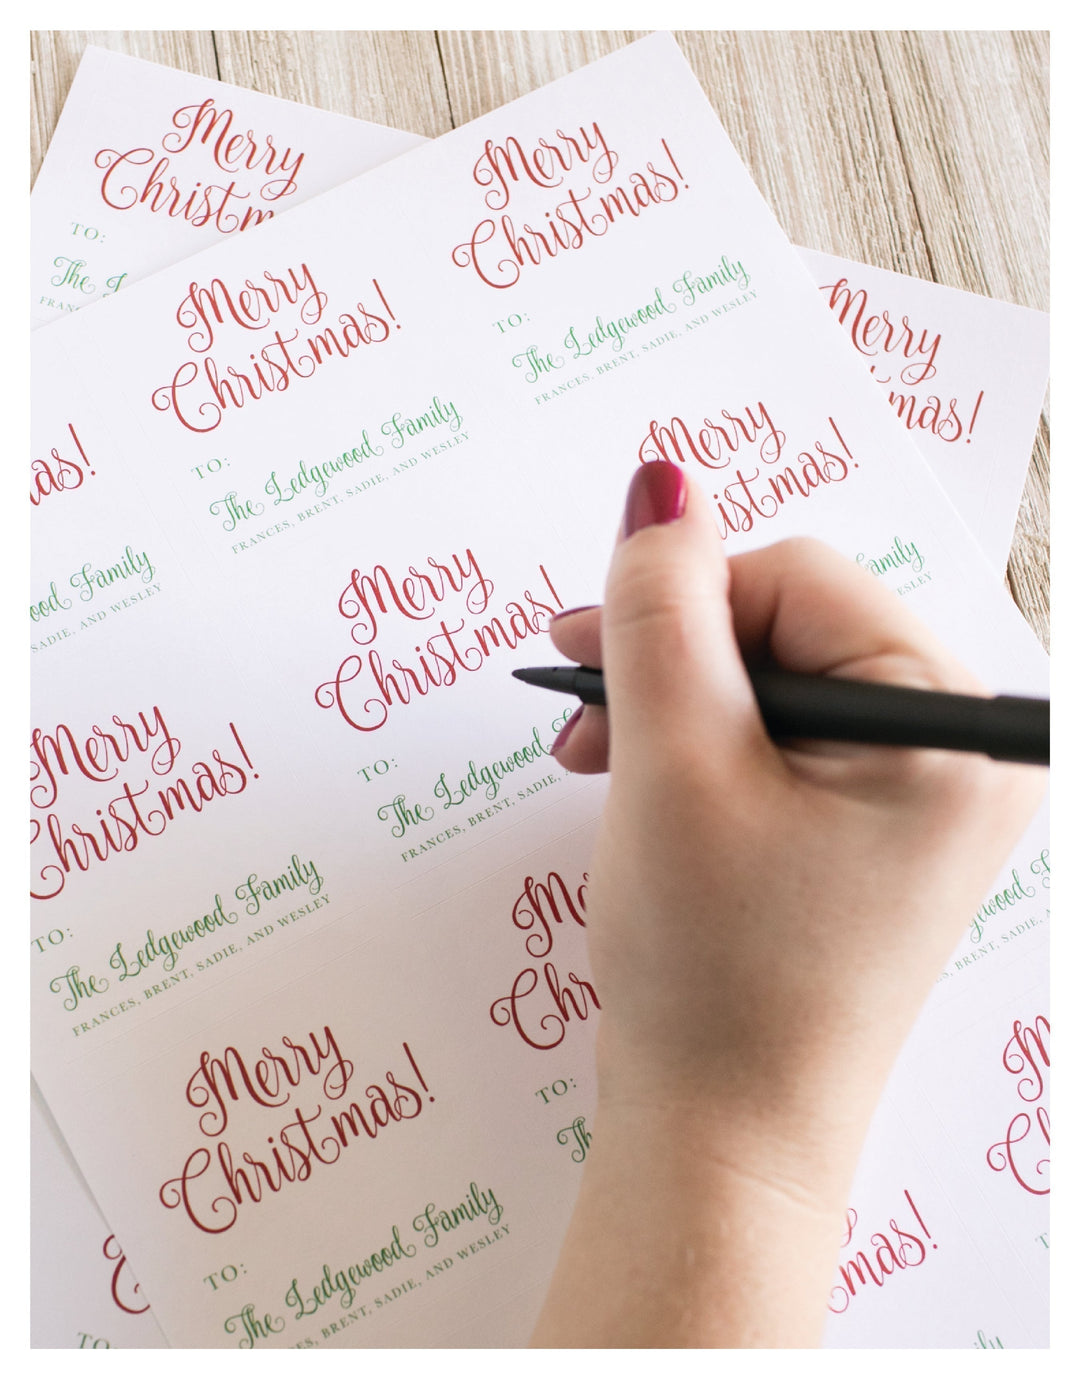 Merry
Christm
TO:
The
FRAN
Merry
Christmas!
TO:
The Ledgewood Family
FRANCES, BRENT, SADIE, AND WESLEY
Merry
Christmas!
TO:
The Ledgewood Family
FRANCES, BRENT, SADIE, AND WESLEY
Merry
mas!
as!
ood Family
SADIE, AND WESLEY
Merry
istmas!
amily
ESLEY
Merry
Christmas!
TO:
The Ledgewood
FRANCES, BRENT, SADIE,
Merry
Christmas!
TO:
The Ledgewood Family
FRANCES, BRENT, SADIE, AND WESLEY
Me
Chr
TO:
Th
gewood
Merry
Christmas!
TO:
The Ledgewood Family
FRANCES, BRENT, SADIE, AND WESLEY
M
C
mas!
mily
C
TO: